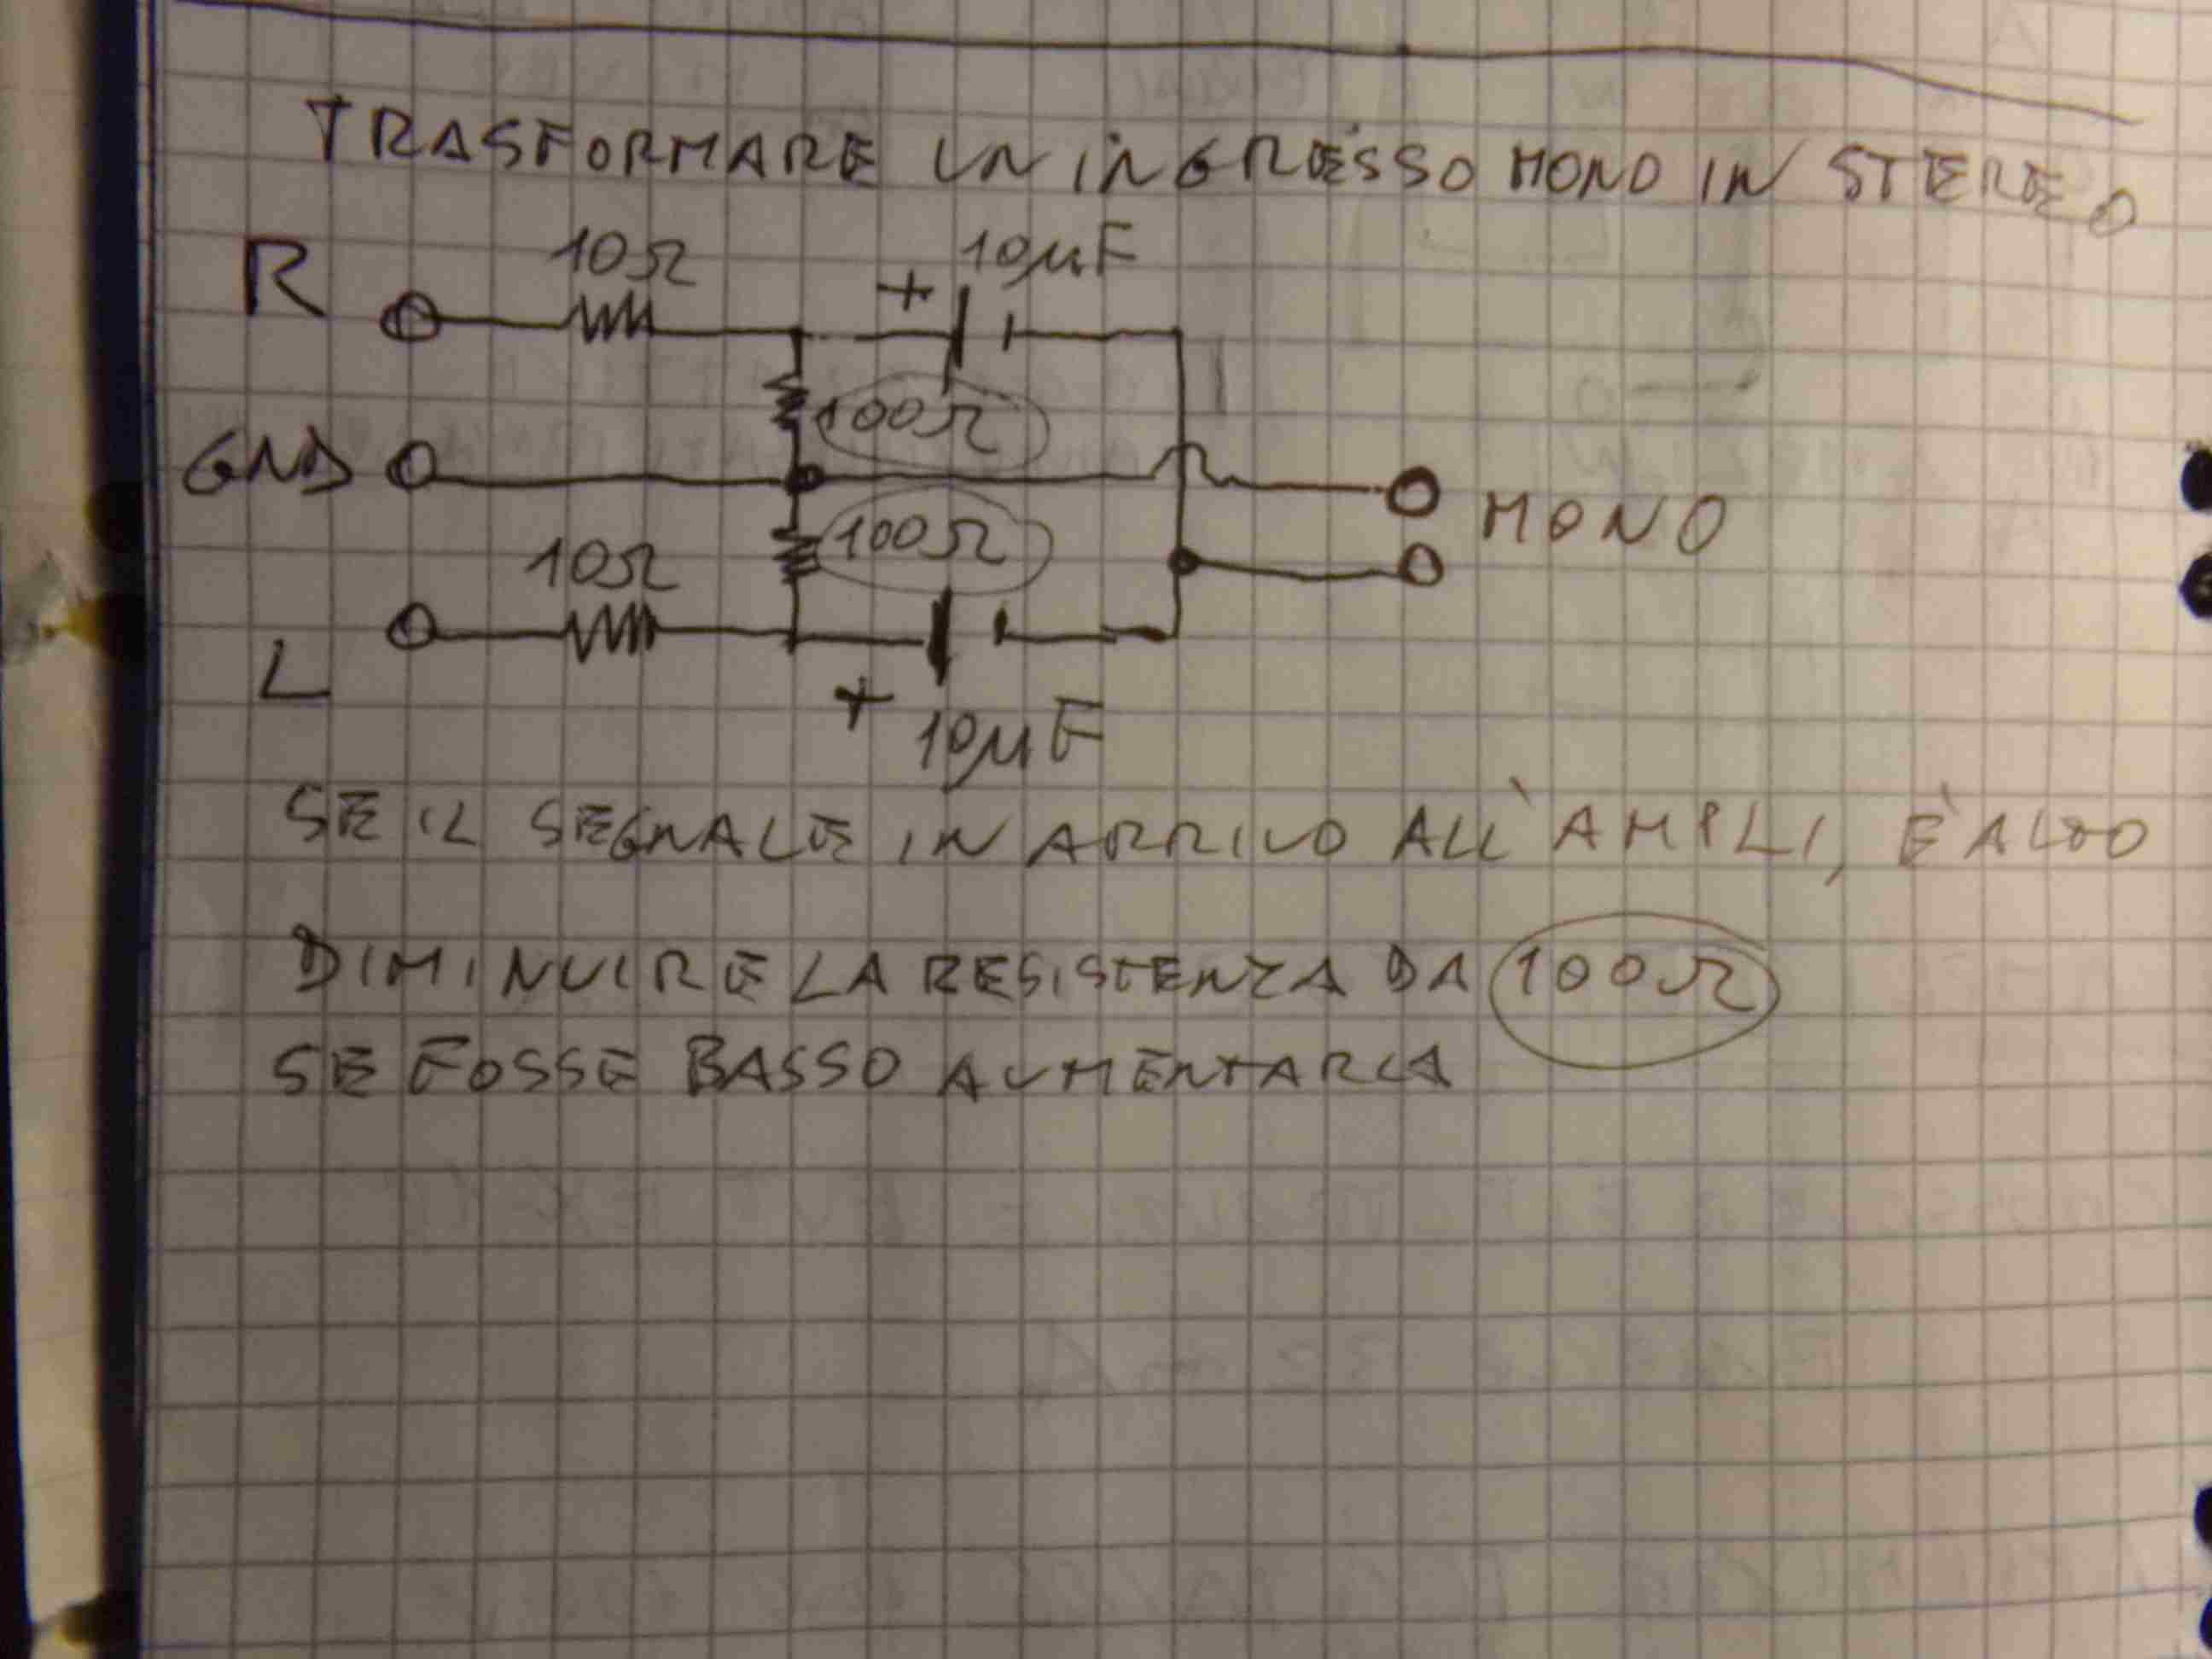 TRASFORMARE UN INGRESSO MONO IN STEREO
R 10Ω + 10µF
100Ω
GND MONO
100Ω
10Ω
L + 10µF
SE IL SEGNALE IN ARRIVO ALL'AMPLI, E' ALTO
DIMINUIRE LA RESISTENZA DA 100Ω
SE FOSSE BASSO AUMENTARLA